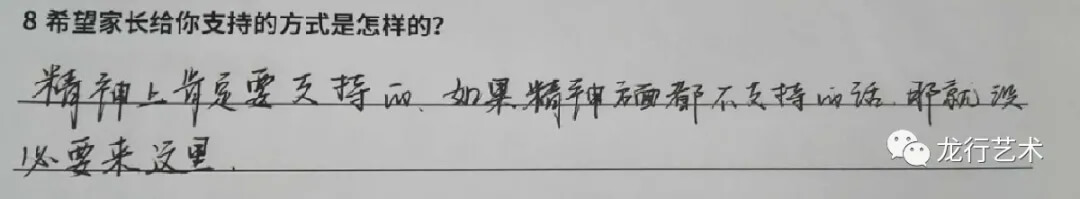 8 希望家长给你支持的方式是怎样的?
精神上肯定要支持的、如果精神方面都不支持的话.那就没
必要来这里.
龙行艺术